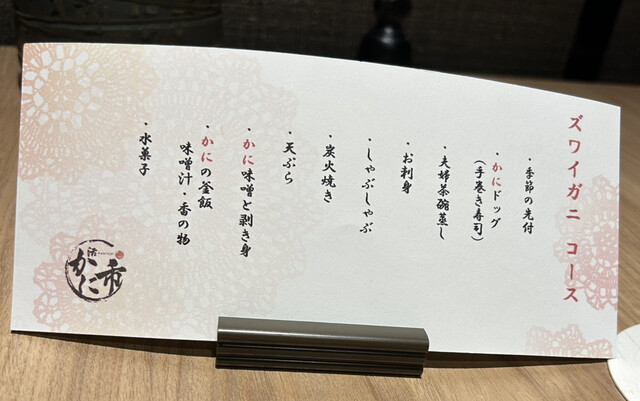 ズワイガニ コース
・季節の先付
・かにドッグ
(手巻き寿司)
・夫婦茶碗蒸し
・お刺身
・しゃぶしゃぶ
・炭火焼き
・天ぷら
・かに味噌と剥き身
・かにの釜飯
味噌汁・香の物
・水菓子
活
かに
市